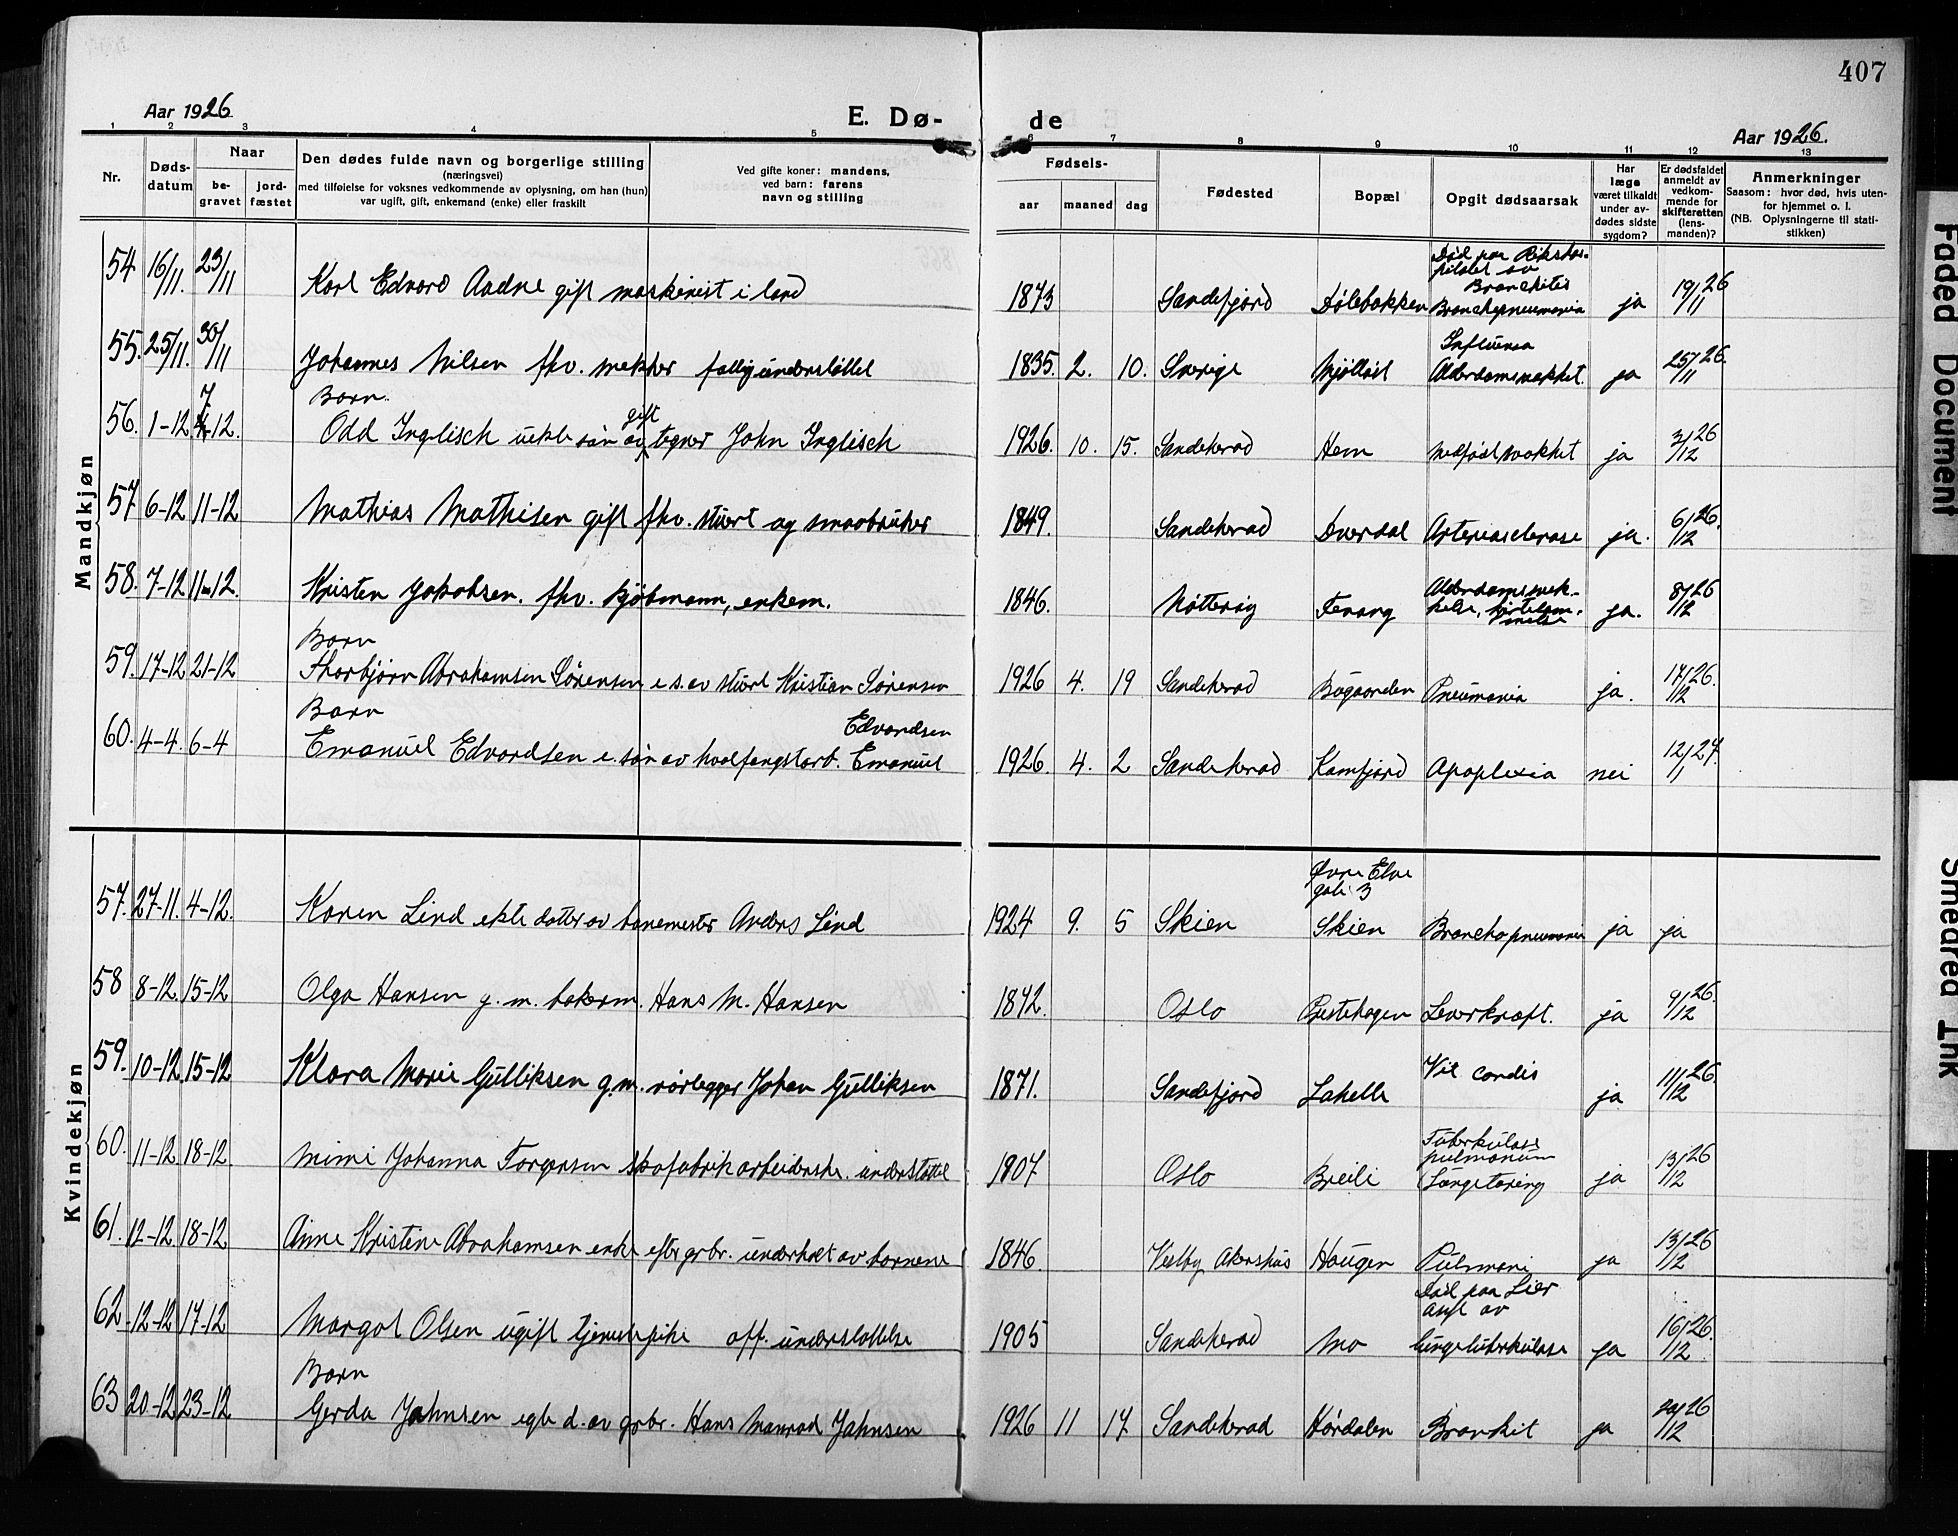 407
Aar 1926
E. Dø-
de
Aar 1926.
1 2 3 4 5 6 7 8 9 10 11 12 13
Nr.
Døds-
datum
Naar
be-
gravet
jord-
fæstet
Den dødes fulde navn og borgerlige stilling
(næringsvei)
med tilføielse for voksnes vedkommende av oplysning, om han (hun)
var ugift, gift, enkemand (enke) eller fraskilt
Ved gifte koner: mandens,
ved barn: farens
navn og stilling
Fødsels-
aar maaned dag
Fødested
Bopæl
Opgit dødsaarsak
Har
læge
været tilkaldt
under av-
dødes sidste
sygdom?
Er dødsfaldet
anmeldt av
vedkom-
mende for
skifteretten
(lens-
manden)?
Anmerkninger
Saasom: hvor død, hvis uten-
for hjemmet o. l.
(NB. Oplysningerne til stati-
stikken)
Mandkjøn
54 16/11. 23/11 Karl Edvard Aadne gift maskinist i land 1873 Sandefjord Dølebakken
Død paa Rikshos-
pitalet av
Bronchitis
Bronchopneumonia ja 19/11 26
55. 25/11. 30/11 Johannes Nilsen fhv. mekker fattigunderstøttet 1835. 2. 10. Sverige Mjøllöst
Influensa
Alderdomsvakhet. ja 25/11 26.
Barn.
56. 1-12 7/12. Odd Inglisch uekte søn av gift tegner John Inglisch 1926. 10. 15. Sandeherad Hem Medfødt svakhet ja 3/12 26
57 6-12 11-12 Mathias Mathisen gift fhv. stuert og smaabruker 1849. Sandeherad Dverdal Arteriosclerose ja. 6/12 26.
58. 7-12 11-12. Kristen Jakobsen. fhv. kjøbmann, enkem. 1846. Nøtterøy Fevang
Alderdomsvek-
kelse, ja. 8/12 26
Barn
59. 17-12 21-12 Thorbjørn Abrahamsen Sørensen e.s. av stuert Kristian Sørensen 1926 4. 19 Sandeherad Bøgaarden Pneumonia ja. 17/12 26.
Barn
60. 4-4. 6-4 Emanuel Edvardsen e. søn av hvalfangstarb. Emanuel Edvardsen 1926. 4. 2 Sandeherad Kamfjord Apoplexia nei 12/1 27.
Kvindekjøn
Øvre Elve
gate 3
57. 27-11. 4-12. Karen Lind ekte datter av banemester Anders Lind 1924 9. 5 Skien Skien Bronchopneumonia ja ja
58 8-12. 15-12 Olga Hansen g. m. bakerm. Hans M. Hansen 1842. Oslo Prestehagen Leverkræft. ja 9/12 26.
59. 10-12 15-12 Klara Marie Gulliksen g.m. rørlegger Johan Gulliksen 1871. Sandefjord Lahelle Vit cordis ja 11/12 26.
60. 11-12 18-12. Mimi Johanna Torgersen skofabrikarbeiderske. understøttet 1907 Oslo Breili
Tuberkulose
pulmonum
Lungetæring ja 13/12 26
61. 12-12 18-12 Anne Kristine Abrahamsen enke efter grbr. underholdt av barnene 1846. Vestby Akershus Haugen Pulmoni ja 13/12 26
62 12-12 17-12 Margot Olsen ugift tjenestepike off. understøttelse 1905 Sandeherad Mo
Død paa Lier
Asyl av
lungetuberkulose ja 16/12 26.
Barn
63 20-12 23-12 Gerda Jahnsen egte d. av grbr. Hans Manrad Jahnsen 1926 11 17 Sandeherad Hørdalen Bronkit ja 20/12 26
Faded Document
Smeared Ink